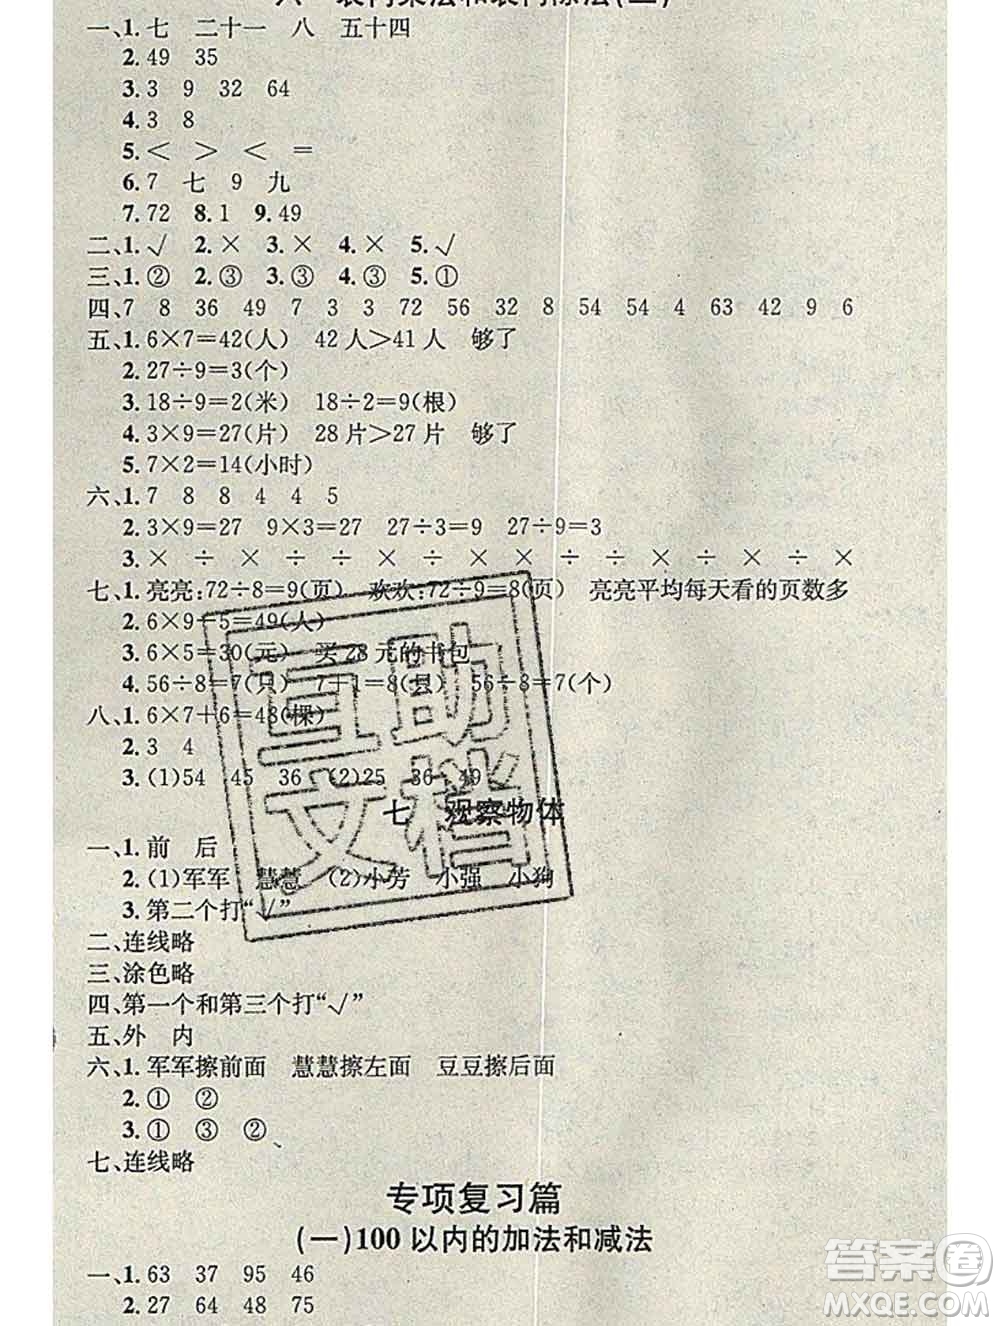 六 表内乘法和表内除法(二)
一、1.七 二十一 八 五十四
2.49 35
3.3 9 32 64
4.3 8
5.< > < =
6.7 七 9 九
7.72 8.1 9.49
二、1.√ 2.× 3.× 4.× 5.√
三、1.② 2.③ 3.③ 4.③ 5.①
四、7 8 36 49 7 3 3 72 56 32 8 54 54 4 63 42 9 6
五、1.6×7=42(人) 42人>41人 够了
2.27÷9=3(个)
3.18÷9=2(米) 18÷2=9(根)
4.3×9=27(片) 28片>27片 够了
5.7×2=14(小时)
六、1.7 8 8 4 4 5
2.3×9=27 9×3=27 27÷3=9 27÷9=3
3.× ÷ × ÷ × ÷ × ÷ × ÷ × ÷ × ÷ ×
七、1.亮亮:72÷8=9(页) 欢欢:72÷9=8(页) 亮亮平均每天看的页数多
2.6×9-5=49(人)
3.6×5=30(元) 买28元的书包
4.56÷8=7(只) 7+1=8(只) 56÷8=7(个)
八、1.6×7+6=48(棵)
2.3 4
3.(1)54 45 36 (2)25 36 49
七 观察物体
一、1.前 后
2.(1)军军 慧慧 (2)小芳 小强 小狗
3.第二个打“√”
二、连线略
三、涂色略
四、第一个和第三个打“√”
五、外 内
六、1.军军擦前面 慧慧擦左面 豆豆擦后面
2.① ②
3.① ③ ②
七、连线略
专项复习篇
(一)100以内的加法和减法
一、1.63 37 95 46
2.27 64 48 75
互助
文档
答案圈
MXQE.COM